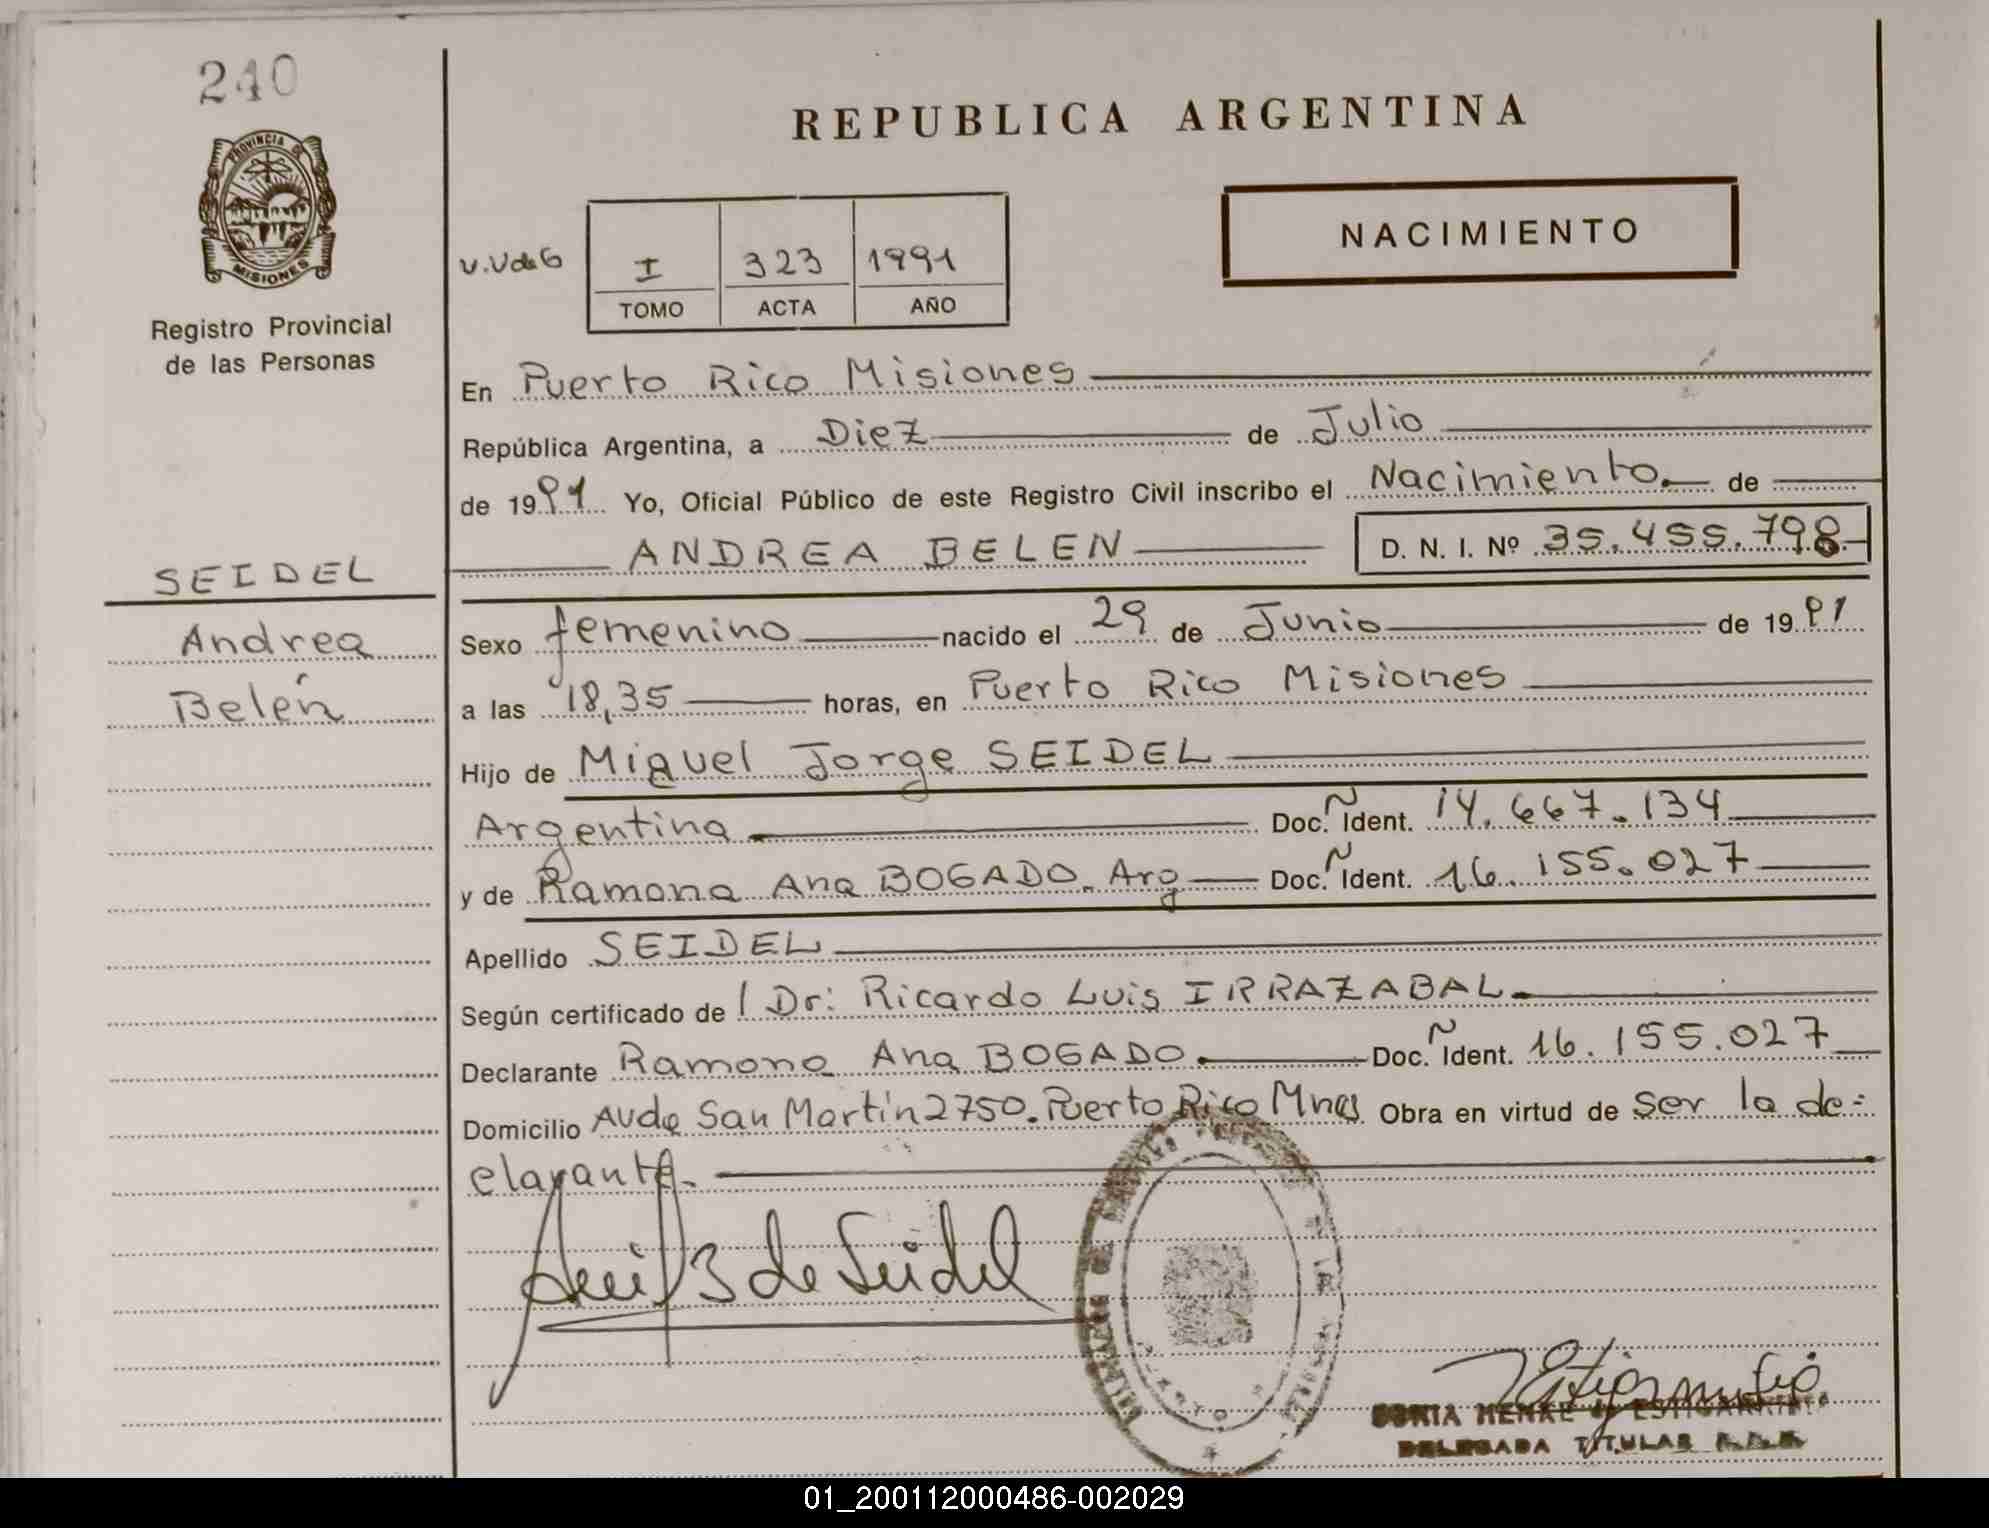 240
PROVINCIA DE
MISIONES
Registro Provincial
de las Personas
SEIDEL
Andrea
Belén
REPUBLICA ARGENTINA
NACIMIENTO
I 323 1991
TOMO ACTA AÑO
En Puerto Rico Misiones
República Argentina, a Diez de Julio
de 1991 Yo, Oficial Público de este Registro Civil inscribo el Nacimiento. de
ANDREA BELEN D. N. I. Nº 35.455.798
Sexo femenino nacido el 29 de Junio de 1991
a las 18,35 horas, en Puerto Rico Misiones
Hijo de Miguel Jorge SEIDEL
Argentina Doc. Ident. 14.667.134
y de Ramona Ana BOGADO. Arg Doc. Ident. 16.155.027
Apellido SEIDEL
Según certificado de Dr: Ricardo Luis IRRAZABAL
Declarante Ramona Ana BOGADO. Doc. Ident. 16.155.027
Domicilio Avda San Martin 2750. Puerto Rico Mnes Obra en virtud de Ser la de-
clarante.
B de Seidel
SONIA HENKE
DELEGADA TITULAR
01_200112000486-002029